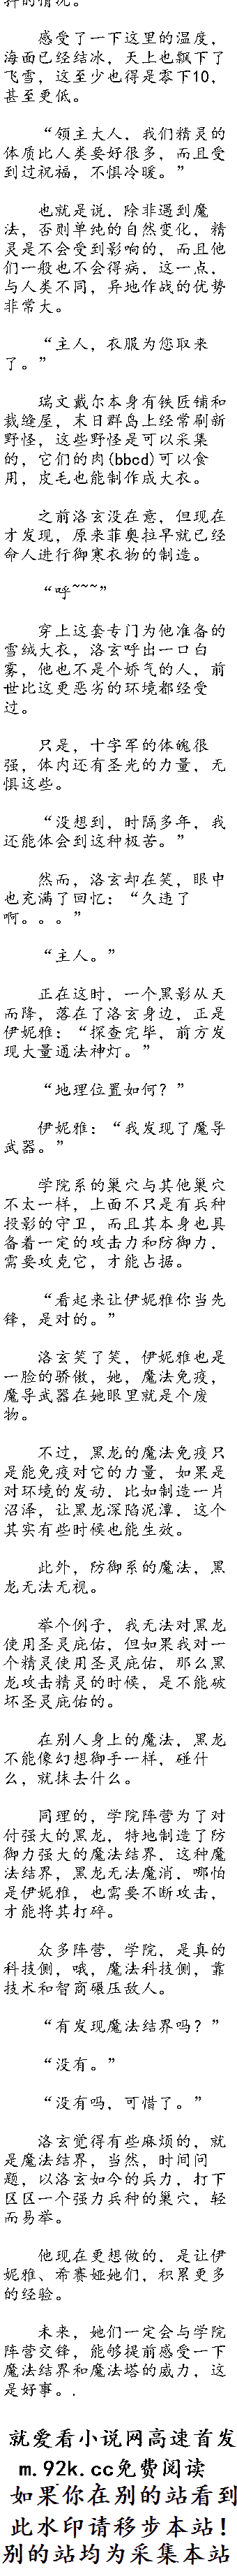 感受了一下这里的温度，
海面已经结冰，天上也飘下了
飞雪，这至少也得是零下10，
甚至更低。
“领主大人，我们精灵的
体质比人类要好很多，而且受
到过祝福，不惧冷暖。”
也就是说，除非遇到魔
法，否则单纯的自然变化，精
灵是不会受到影响的，而且他
们一般也不会得病，这一点，
与人类不同，异地作战的优势
非常大。
“主人，衣服为您取来
了。”
瑞文戴尔本身有铁匠铺和
裁缝屋，末日群岛上经常刷新
野怪，这些野怪是可以采集
的，它们的肉(bbcd)可以食
用，皮毛也能制作成大衣。
之前洛玄没在意，但现在
才发现，原来菲奥拉早就已经
命人进行御寒衣物的制造。
“呼~~~”
穿上这套专门为他准备的
雪绒大衣，洛玄呼出一口白
雾，他也不是个娇气的人，前
世比这更恶劣的环境都经受
过。
只是，十字军的体魄很
强，体内还有圣光的力量，无
惧这些。
“没想到，时隔多年，我
还能体会到这种极苦。”
然而，洛玄却在笑，眼中
也充满了回忆：“久违了
啊。。。”
“主人。”
正在这时，一个黑影从天
而降，落在了洛玄身边，正是
伊妮雅：“探查完毕，前方发
现大量通法神灯。”
“地理位置如何？”
伊妮雅：“我发现了魔导
武器。”
学院系的巢穴与其他巢穴
不太一样，上面不只是有兵种
投影的守卫，而且其本身也具
备着一定的攻击力和防御力，
需要攻克它，才能占据。
“看起来让伊妮雅你当先
锋，是对的。”
洛玄笑了笑，伊妮雅也是
一脸的骄傲，她，魔法免疫，
魔导武器在她眼里就是个废
物。
不过，黑龙的魔法免疫只
是能免疫对它的力量，如果是
对环境的发动，比如制造一片
沼泽，让黑龙深陷泥潭，这个
其实有些时候也能生效。
此外，防御系的魔法，黑
龙无法无视。
举个例子，我无法对黑龙
使用圣灵庇佑，但如果我对一
个精灵使用圣灵庇佑，那么黑
龙攻击精灵的时候，是不能破
坏圣灵庇佑的。
在别人身上的魔法，黑龙
不能像幻想御手一样，碰什
么，就抹去什么。
同理的，学院阵营为了对
付强大的黑龙，特地制造了防
御力强大的魔法结界，这种魔
法结界，黑龙无法魔消，哪怕
是伊妮雅，也需要不断攻击，
才能将其打碎。
众多阵营，学院，是真的
科技侧，哦，魔法科技侧，靠
技术和智商碾压敌人。
“有发现魔法结界吗？”
“没有。”
“没有吗，可惜了。”
洛玄觉得有些麻烦的，就
是魔法结界，当然，时间问
题，以洛玄如今的兵力，打下
区区一个强力兵种的巢穴，轻
而易举。
他现在更想做的，是让伊
妮雅、希赛娅她们，积累更多
的经验。
未来，她们一定会与学院
阵营交锋，能够提前感受一下
魔法结界和魔法塔的威力，这
是好事。.
就爱看小说网高速首发
m.92k.cc免费阅读
如果你在别的站看到
此水印请移步本站！
别的站均为采集本站